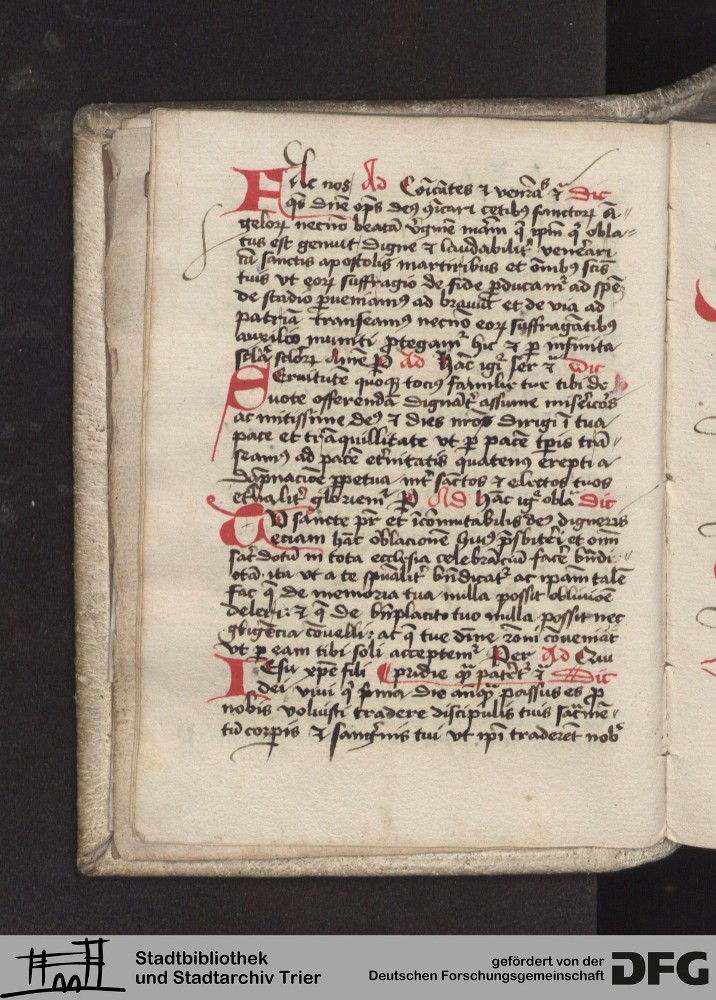 Fac nos Ad Cōīcātes ⁊ venrās ⁊c̄ Dic
qs dne ops deꝯ vicari cetibꝯ sanctorꝫ ā
gelorꝫ necnō beatā v̄ginē mariā q̄ ip̄m q̄ obla
tus est genuit digne ⁊ laudabilit̄ venerari
cū sanctis apostolis martiribus et omībꝯ scīs
tuis vt eorꝫ suffragio de fide p̄ducam̄ ad spē
de stadio p̄ueniamꝯ ad brauiū et de via ad
patriā transeamꝯ necnō eorꝫ suffragātibꝯ
auxilio muniti p̄tegam̄ hic ⁊ p̄ infinita
sc̄la sc̄lorꝫ Amē P̄ Ad Hāc igr̄ ser ⁊c̄ Dic
Seruitutē quoqꝫ tocius familie tue tibi de
uote offerendā dignāt̄ assume misericors
ac mitissime deꝯ ⁊ dies nr̄os dirigi ī tua
pace et trāquillitate vt p̄ pacē tp̄is trā
seamꝯ ad pacē et̄nitatis quatenꝯ erepti a
dāpnacōe p̄petua int̄ sāctos ⁊ electos tuos
et̄nalit̄ gloriem̄ P̄ Ad Hāc igr̄ oblā Dic
Tu sancte pr̄ et īcōmutabilis deꝯ digneris
eciam hāc oblacionē huiꝯ p̄sbiteri et om̄
sac̄dotū in tota ecclesia celebrāciū facē bn̄di
ctā ita vt a te sp̄ualit̄ bn̄dicat̄ ac ip̄am talē
fac q̄ de memoria tua nulla possit obliuiōe
deleri: ⁊ q̄ de bn̄placito tuo nulla possit nec
gligēcia cōuelli: ac q̄ tue dīne rōni cōueniat
vt p̄ eam tibi soli acceptem̄ Per Ad Qui
Iesu xp̄e fili pridie q̄ pater̄t̄ ⁊c̄ Dic
dei viui q̄ p̄ma die anteq̄ passus es p̄
nobis voluisti tradere discipulis tuis sac̄mē
tū corp̄is ⁊ sanḡnis tui vt ip̄i traderēt nob̄
Stadtbibliothek
und Stadtarchiv Trier
gefördert von der
Deutschen Forschungsgemeinschaft
DFG